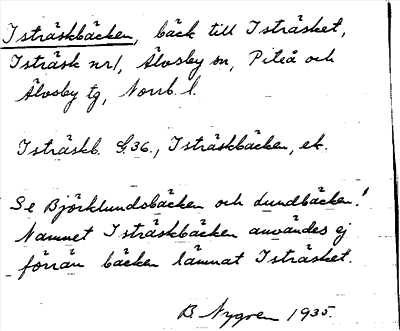 Isträskbäcken, bäck till Isträsket,
Isträsk nr1, Älvsby sn, Piteå och
Älvsby tg, Norrb. l.
Isträskb. S.36., Isträskbäcken, ek.
Se Björklundsbäcken och Lundbäcken!
Namnet Isträskbäcken användes ej
förrän bäcken lämnat Isträsket.
B Nygren 1935.